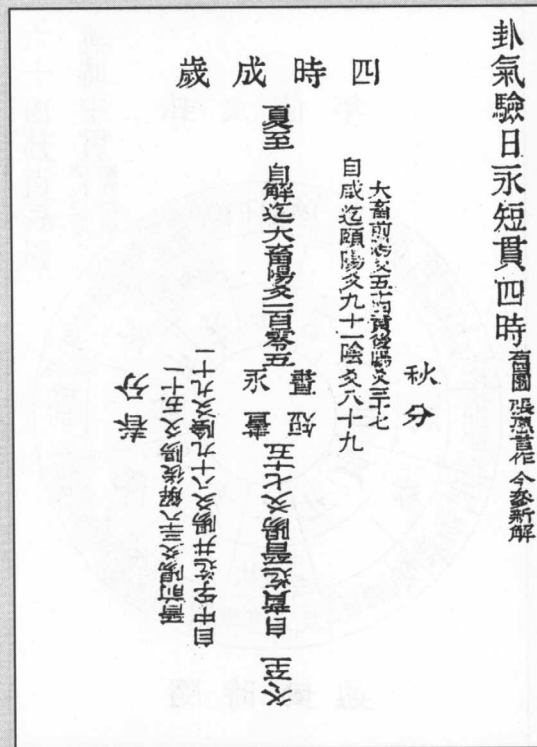 卦氣驗日永短貫四時 舊圖 張鳳書作 今叅新解
四時成歲
秋分
大畜前陽爻五十四賁後陽爻三十七
自咸迄頤陽爻九十一陰爻八十九
晝永
晝短
夏至 自解迄大畜陽爻一百零五
冬至 自賁迄晉陽爻七十五
自中孚迄井陽爻八十九陰爻九十一
晉前陽爻三八解後陽爻五十一
春分